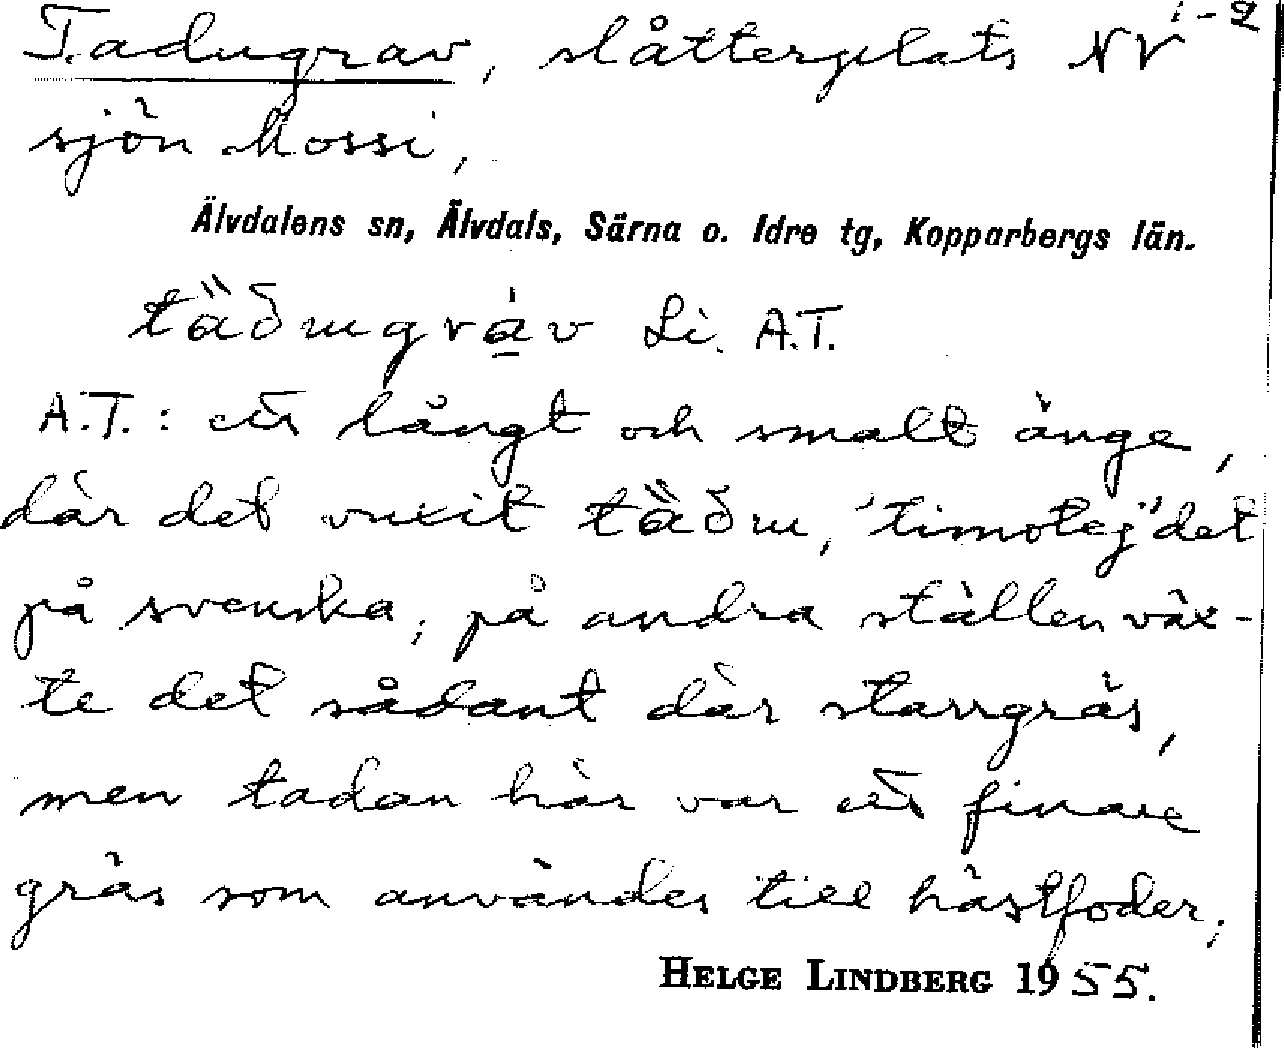 Tadugrav, slåtterplats NV 1-2
sjön Mossi,
Älvdalens sn, Älvdals, Särna o. Idre tg, Kopparbergs län.
tä̀ðugráv Li. A.T.
A.T.: ett långt och smalt änge,
där det vuxit tä̀ðu, "timotej" det
på svenska; på andra ställen väx-
te det sådant där starrgräs,
men tadan här var ett finare
gräs som användes till hästfoder;
HELGE LINDBERG 1955.